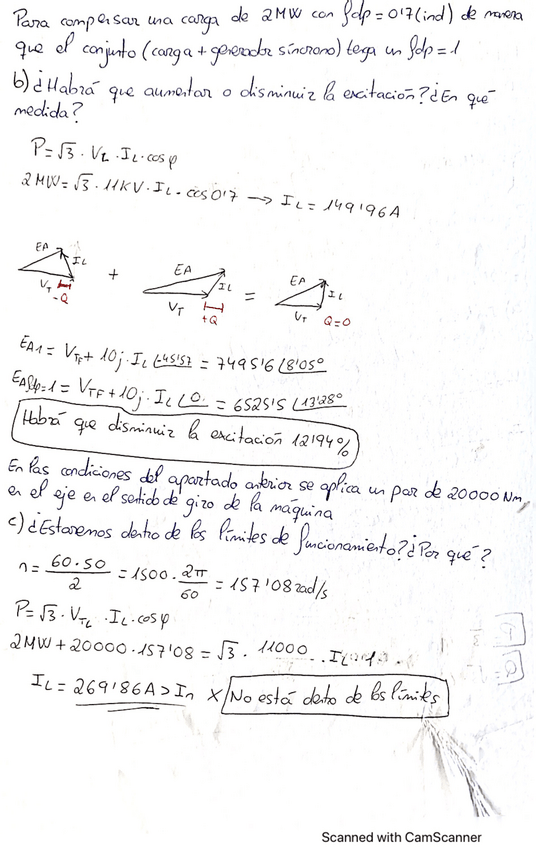 Para compensar una carga de 2MW con fdp = 0'7 (ind) de manera
que el conjunto (carga + generador síncrono) tega un fdp = 1
b) ¿Habrá que aumentar o disminuir la excitación? ¿En qué
medida?
P = √3 · VL · IL · cosφ
2MW = √3 · 11KV · IL · cos0'7 → IL = 149'96A
EA IL VT -Q + EA IL VT +Q = EA IL VT Q=0
EA1 = VTF + 10j · IL ∠-45'57 = 7495'6 ∠8'05°
EAfdp=1 = VTF + 10j · IL ∠0 = 6525'5 ∠13'28°
Habrá que disminuir la excitación 12'94%
En las condiciones del apartado anterior se aplica un par de 20000 Nm
en el eje en el sentido de giro de la máquina
c) ¿Estaremos dentro de los límites de funcionamiento? ¿Por qué?
n = 60·50/2 = 1500 · 2π/60 = 157'08 rad/s
P = √3 · VTL · IL · cosφ
2MW + 20000 · 157'08 = √3 · 11000 · IL · 1
IL = 269'86A > In X No está dento de los límites
Scanned with CamScanner